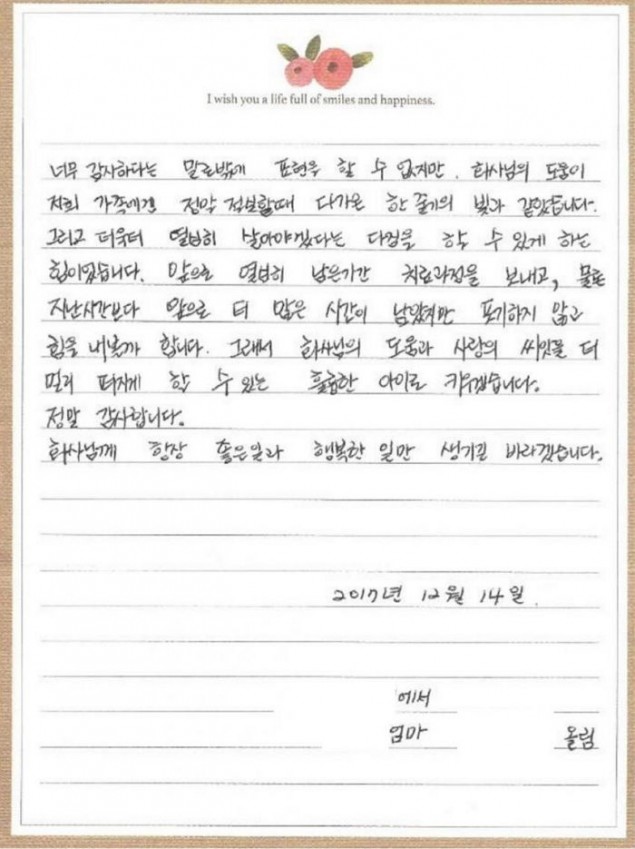 I wish you a life full of smiles and happiness.
너무 감사하다는 말로밖에 표현을 할 수 없지만. 회사님의 도움이
저희 가족에겐 정말 절보할때 다가온 한 줄기의 빛과 같았습니다.
그리고 더욱더 열심히 살아야겠다는 다짐을 할 수 있게 하는
힘이었습니다. 앞으로 열심히 남은기간 치료과정을 보내고, 물론
지난시간보다 앞으로 더 많은 시간이 남았지만 포기하지 않고
힘을 내볼까 합니다. 그래서 회사님의 도움과 사랑의 씨앗을 더
멀리 퍼지게 할 수 있는 훌륭한 아이로 키우겠습니다.
정말 감사합니다.
회사님께 항상 좋은일과 행복한 일만 생기길 바라겠습니다.
2017년 12월 14일.
에서
엄마 올림